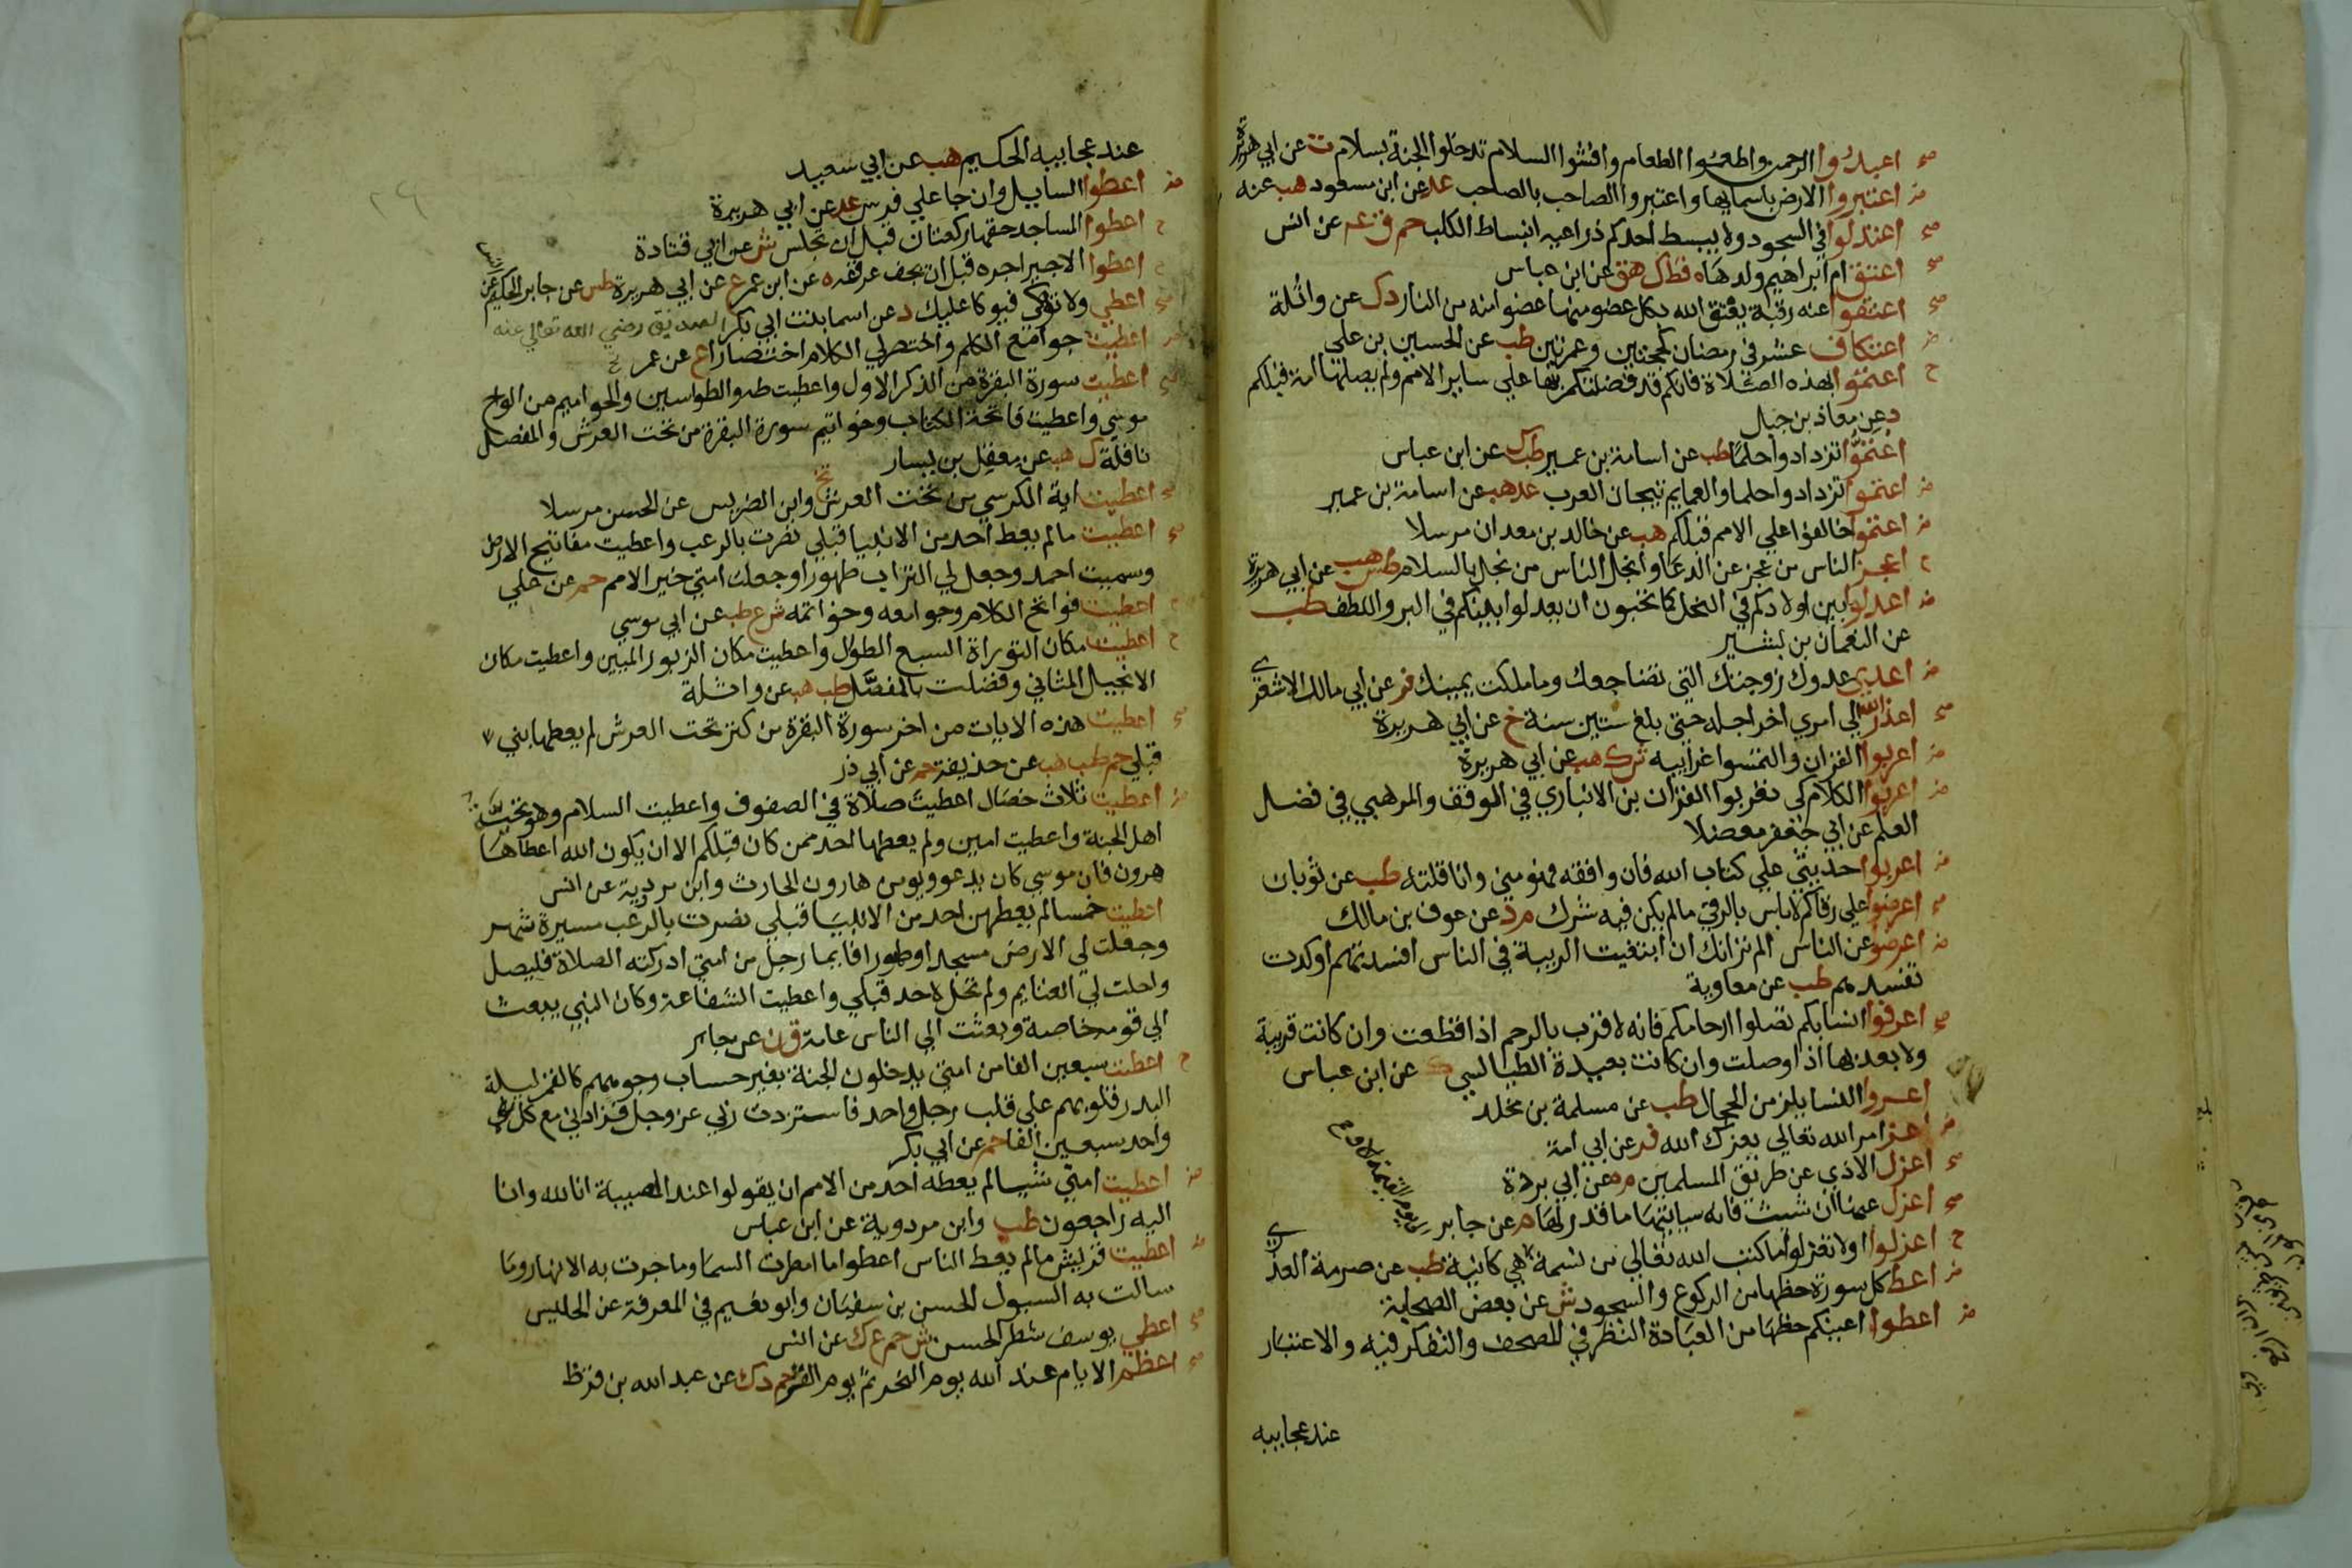 صح اعبدوا الرحمن واطعموا الطعام وافشوا السلام تدخلوا الجنة بسلام ت عن ابي هريرة
ض اعتبروا الارض باسمايها واعتبروا الصاحب بالصاحب عد عن ابن مسعود هب عنه
صح اعتدلوا في السجود ولا يبسط احدكم ذراعيه انبساط الكلب حم ق عن انس
صح اعتق ام ابراهيم ولدها ه قط ك هق عن ابن عباس
صح اعتقوا عنه رقبة يعتق الله بكل عضو منها عضوا منه من النار د ك عن واثلة
ض اعتكاف عشر في رمضان كحجتين وعمرتين طب عن الحسين بن علي
ح اعتموا بهذه الصلاة فانكم قد فضلتم بها علي ساير الامم ولم يصلها امة قبلكم
د عن معاذ بن جبل
اعتموا تزدادوا حلما طب عن اسامة بن عمير طب ك عن ابن عباس
ض اعتموا تزدادوا حلما والعمايم تيجان العرب عد هب عن اسامة بن عمير
ض اعتموا خالفوا علي الامم قبلكم هب عن خالد بن معدان مرسلا
ح اعجز الناس من عجز عن الدعا وابخل الناس من بخل بالسلام طس هب عن ابي هريرة
ض اعدلوا بين اولادكم في النحل كما تحبون ان يعدلوا بينكم في البر واللطف طب
عن النعمان بن بشير
ض اعدي عدوك زوجتك التي تضاجعك وما ملكت يمينك فر عن ابي مالك الاشعري
صح اعذر الله الي امري اخر اجله حتي بلغ ستين سنة خ عن ابي هريرة
ض اعربوا القران والتمسوا غرايبه ش ك هب عن ابي هريرة
ض اعربوا الكلام كي تعربوا القران بن الانباري في الوقف والمرهبي في فضل
العلم عن ابي جعفر معضلا
ض اعرضوا حديثي علي كتاب الله فان وافقه فهو مني وانا قلته طب عن ثوبان
صح اعرضوا علي رقاكم لاباس بالرقي مالم يكن فيه شرك م د عن عوف بن مالك
ض اعرضوا عن الناس الم تر انك ان ابتغيت الريبة في الناس افسدتهم او كدت
تفسدهم طب عن معاوية
صح اعرفوا انسابكم تصلوا ارحامكم فانه لا قرب بالرحم اذا قطعت وان كانت قريبة
ولا بعد بها اذا وصلت وان كانت بعيدة الطيالسي ك عن ابن عباس
اعروا النسا يلزمن الحجال طب عن مسلمة بن مخلد
ض اعز امر الله تعالي يعزك الله فر عن ابي امة
صح اعزل الاذي عن طريق المسلمين م ه عن ابي برزة
صح اعزل عنها ان شيت فانه سياتيها ما قدر لها م عن جابر
ح اعزلوا او لا تعزلوا ما كتب الله تعالي من نسمة هي كاينة طب عن صرمة العذري
ض اعط كل سورة حظها من الركوع والسجود ش عن بعض الصحابة
ض اعطوا اعينكم حظها من العبادة النظر في المصحف والتفكر فيه والاعتبار
عند عجايبه
عند عجايبه الحكيم هب عن ابي سعيد
ض اعطوا السايل وان جا علي فرس عد عن ابي هريرة
ح اعطوا المساجد حقها ركعتان قبل ان تجلس ش عن ابي قتادة
ح اعطوا الاجير اجره قبل ان يجف عرقه ه عن ابن عمر ع عن ابي هريرة طس عن جابر الحكيم عن انس
صح اعطي ولا توكي فيوكا عليك د عن اسما بنت ابي بكر الصديق رضي الله تعالي عنه
اعطيت جوامع الكلم واختصر لي الكلام اختصارا ع عن عمر
صح اعطيت سورة البقرة من الذكر الاول واعطيت طه والطواسين والحواميم من الواح
موسي واعطيت فاتحة الكتاب وخواتيم سورة البقرة من تحت العرش والمفصل
نافلة ك هب عن معقل بن يسار
اعطيت اية الكرسي من تحت العرش تخ وابن الضريس عن الحسن مرسلا
صح اعطيت مالم يعط احد من الانبيا قبلي نصرت بالرعب واعطيت مفاتيح الارض
وسميت احمد وجعل لي التراب طهورا وجعلت امتي خير الامم حم عن علي
ح اعطيت فواتح الكلام وجوامعه وخواتمه ش ع طب عن ابي موسي
ح اعطيت مكان التوراة السبع الطول واعطيت مكان الزبور المبين واعطيت مكان
الانجيل المثاني وفضلت بالمفصل طب هب عن واثلة
صح اعطيت هذه الايات من اخر سورة البقرة من كنز تحت العرش لم يعطها نبي
قبلي حم طب هب عن حذيفة حم عن ابي ذر
ض اعطيت ثلاث خصال اعطيت صلاة في الصفوف واعطيت السلام وهو تحية
اهل الجنة واعطيت امين ولم يعطها احد ممن كان قبلكم الا ان يكون الله اعطاها
هرون فان موسي كان يدعو ويومن هارون الحارث وابن مردوية عن انس
اعطيت خمسا لم يعطهن احد من الانبيا قبلي نصرت بالرعب مسيرة شهر
وجعلت لي الارض مسجدا وطهورا فايما رجل من امتي ادركته الصلاة فليصل
واحلت لي الغنايم ولم تحل لاحد قبلي واعطيت الشفاعة وكان النبي يبعث
الي قومه خاصة وبعثت الي الناس عامة ق ن عن جابر
ح اعطيت سبعين الفا من امتي يدخلون الجنة بغير حساب وجوههم كالقمر ليلة
البدر قلوبهم علي قلب رجل واحد فاستزدت ربي عز وجل فزادني مع كل
واحد سبعين الفا حم عن ابي بكر
ض اعطيت امتي شيا لم يعطه احد من الامم ان يقولوا عند المصيبة انا لله وانا
اليه راجعون طب وابن مردوية عن ابن عباس
ض اعطيت قريش مالم يعط الناس اعطوا ما امطرت السما وما جرت به الانهار وما
سالت به السيول الحسن بن سفيان وابو نعيم في المعرفة عن الحليس
صح اعطي يوسف شطر الحسن ش حم ع ك عن انس
صح اعظم الايام عند الله يوم النحر ثم يوم القر حم د ك عن عبد الله بن قرط